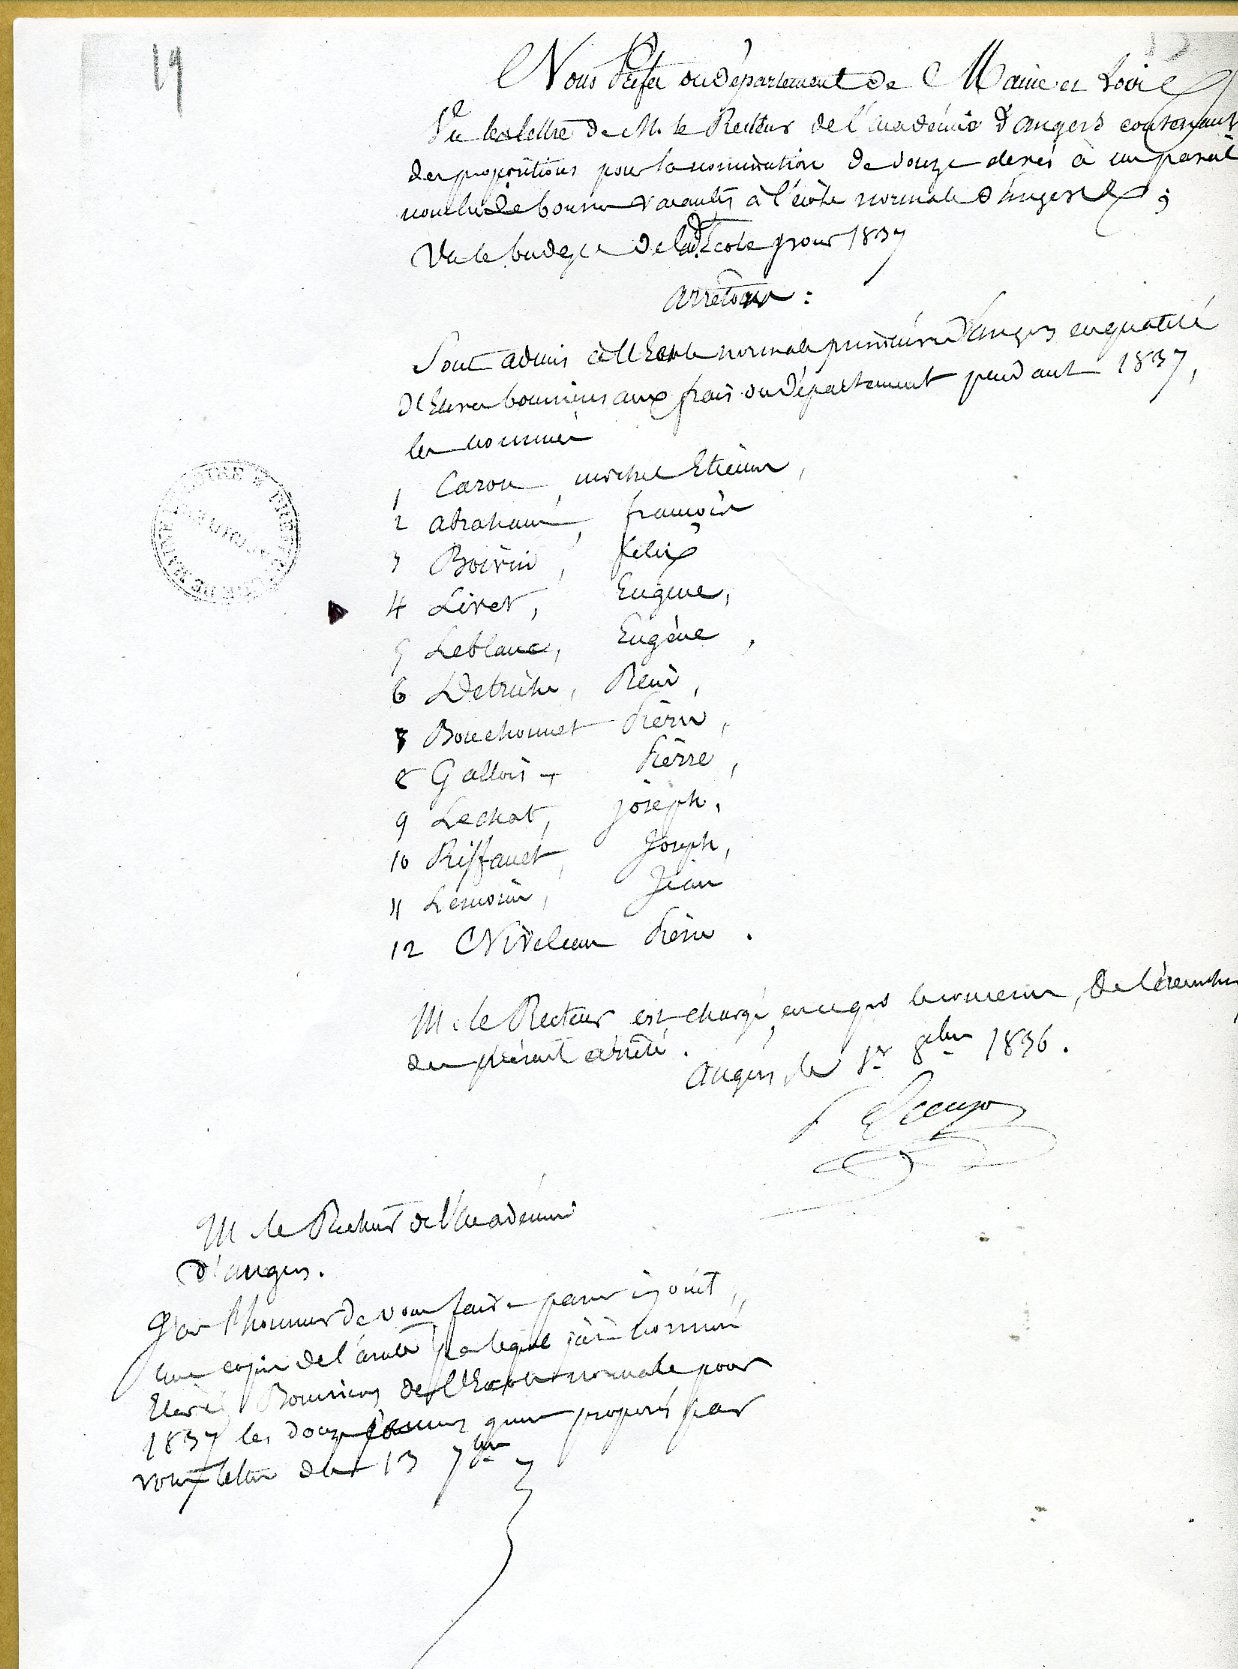 19
Nous Préfet du département de Maine et Loire
Vu la lettre de M. le Recteur de l'académie d'angers contenant
des propositions pour la nomination de douze élèves à un pareil
nombre de bourses vacantes à l'école normale d'angers ;
Vu le budget de la d. Ecole pour 1837
arrêtons :
Sont admis à l'Ecole normale primaire d'angers en qualité
d'Elèves boursiers aux frais du département pendant 1837,
les nommés
1 Caron, michel Etienne,
2 abraham, françois
3 Boivin, félix
4 Livet, Eugène,
5 Leblanc, Eugène,
6 Detriché, René,
7 Bouchonnet Pierre,
8 Gallois, Pierre,
9 Lechat, joseph,
10 Riffault, Joseph,
11 Lemoine, Jean
12 Niveleau Pierre.
M. le Recteur est chargé, en ce qui le concerne, de l'exécution
du présent arrêté.
Angers, le 1er 8bre 1836.
M le Recteur de l'académie
d'angers.
J'ai l'honneur de vous faire passer ci joint,
une copie de l'arrêté par lequel j'ai nommé
Elèves Boursiers de l'Ecole normale pour
1837 les douze jeunes gens proposés par
votre lettre du 13 7bre